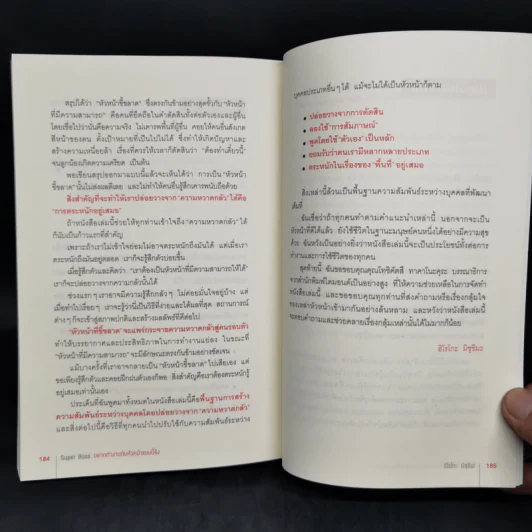 สรุปได้ว่า "หัวหน้าขี้ขลาด" ซึ่งตรงกันข้ามอย่างสุดขั้วกับ "หัวหน้า
ที่มีความสามารถ" คือคนที่ยึดถือในคำตัดสินทั้งต่อตัวเองและผู้อื่น
โดยเชื่อไปว่านั่นคือความจริง ไม่เคารพพื้นที่ผู้อื่น คอยให้คนอื่นสังเกต
สีหน้าของตน ทำให้คนอื่นต้องทำงานที่ไม่จำเป็น ทั้งยังเป็นการก่อปัญหาและ
สร้างความเหนื่อยล้า เรื่องที่ควรให้เวลาก็ตัดสินว่า "ต้องทำเดี๋ยวนี้"
จนลูกน้องเกิดความเครียด เป็นต้น
พอเขียนสรุปออกมาแบบนี้แล้วจะเห็นได้ว่า การเป็น "หัวหน้า
ขี้ขลาด" นั้นไม่ส่งผลดีเลย และไม่ทำให้คนอื่นรู้สึกเคารพนับถือด้วย
สิ่งสำคัญที่จะทำให้เราปล่อยวางจาก "ความหวาดกลัว" ได้คือ
"การตระหนักอยู่เสมอ"
ถ้าหนังสือเล่มนี้ช่วยให้ทุกท่านเข้าใจถึง "ความหวาดกลัว" ได้
ก็นับเป็นก้าวแรกที่สำคัญ
เพราะถ้าเราไม่เข้าใจย่อมไม่อาจตระหนักถึงมันได้ แต่เมื่อเรา
ตระหนักถึงมันอยู่ตลอด เราก็จะรู้สึกตัวบ่อยขึ้น
เมื่อรู้สึกตัวและคิดว่า "เราต้องเป็นหัวหน้าที่มีความสามารถให้ได้"
เราก็จะปล่อยวางจากความหวาดกลัวนั้นได้
ช่วงแรกๆ เราอาจมีความรู้สึกกลัวๆ ไม่ค่อยมั่นใจอยู่บ้าง แต่
เมื่อทำไปเรื่อยๆ เราก็จะรู้ว่านี่เป็นวิธีที่ง่ายและได้ผลดีที่สุด สถานการณ์
ต่างๆ ก็จะเข้าสู่สภาพปกติและสร้างผลลัพธ์ที่ดีได้
"หัวหน้าที่ขี้ขลาด" จะแพร่กระจายความหวาดกลัวสู่คนรอบตัว
ทำให้บรรยากาศและประสิทธิภาพในการทำงานแย่ลง ในขณะที่
"หัวหน้าที่มีความสามารถ" จะมีลักษณะตรงกันข้ามอย่างชัดเจน
แม้บางครั้งที่เราอาจกลายเป็น "หัวหน้าที่ขี้ขลาด" ไปเสียเอง แต่
ขอเพียงรู้สึกตัวและคอยฝึกฝนตัวเองก็พอ สิ่งสำคัญคือเราต้องตระหนักรู้
อยู่เสมอเท่านั้นเอง
ประเด็นที่ฉันพูดมาทั้งหมดในหนังสือเล่มนี้คือพื้นฐานการสร้าง
ความสัมพันธ์ระหว่างบุคคลโดยปล่อยวางจาก "ความหวาดกลัว"
และสิ่งต่อไปนี้คือวิธีที่ทุกคนนำไปปรับใช้กับความสัมพันธ์ระหว่าง
184
Super Boss
บุคคลประเภทอื่นๆ ได้ แม้จะไม่ได้เป็นหัวหน้าก็ตาม
• ปล่อยวางจากการตัดสิน
• ลองใช้ "การสัมภาษณ์"
• พูดโดยใช้ "ตัวเอง" เป็นหลัก
• ยอมรับว่าคนเรามีหลากหลายประเภท
• ตระหนักในเรื่องของ "พื้นที่" อยู่เสมอ
สิ่งเหล่านี้ล้วนเป็นพื้นฐานความสัมพันธ์ระหว่างบุคคลที่พัฒนา
เต็มที่
ฉันเชื่อว่าถ้าทุกคนทำตามคำแนะนำเหล่านี้ นอกจากจะเป็น
หัวหน้าที่ดีได้แล้ว ยังใช้ชีวิตในฐานะมนุษย์คนหนึ่งได้อย่างมีความสุข
ด้วย ฉันหวังเป็นอย่างยิ่งว่าหนังสือเล่มนี้จะเป็นประโยชน์ทั้งต่อการ
ทำงานและการใช้ชีวิตของทุกคน
สุดท้ายนี้ ฉันขอขอบคุณคุณโทชิคัตสึ ทาคาโนะคุระ บรรณาธิการ
จากสำนักพิมพ์ไดมอนด์เป็นอย่างสูง ที่ให้ความช่วยเหลือในการจัดทำ
หนังสือเล่มนี้ และขอขอบคุณทุกท่านที่ส่งคำถามหรือเรื่องกลุ้มใจ
ของการเป็นหัวหน้าเข้ามากันอย่างล้นหลาม และหวังว่าหนังสือเล่มนี้
จะตอบคำถามและช่วยคลายเรื่องกลุ้มเหล่านั้นได้ไม่มากก็น้อย
ฮิโรโกะ มิซุชิมะ
ฮิโรโกะ มิซุชิมะ 185